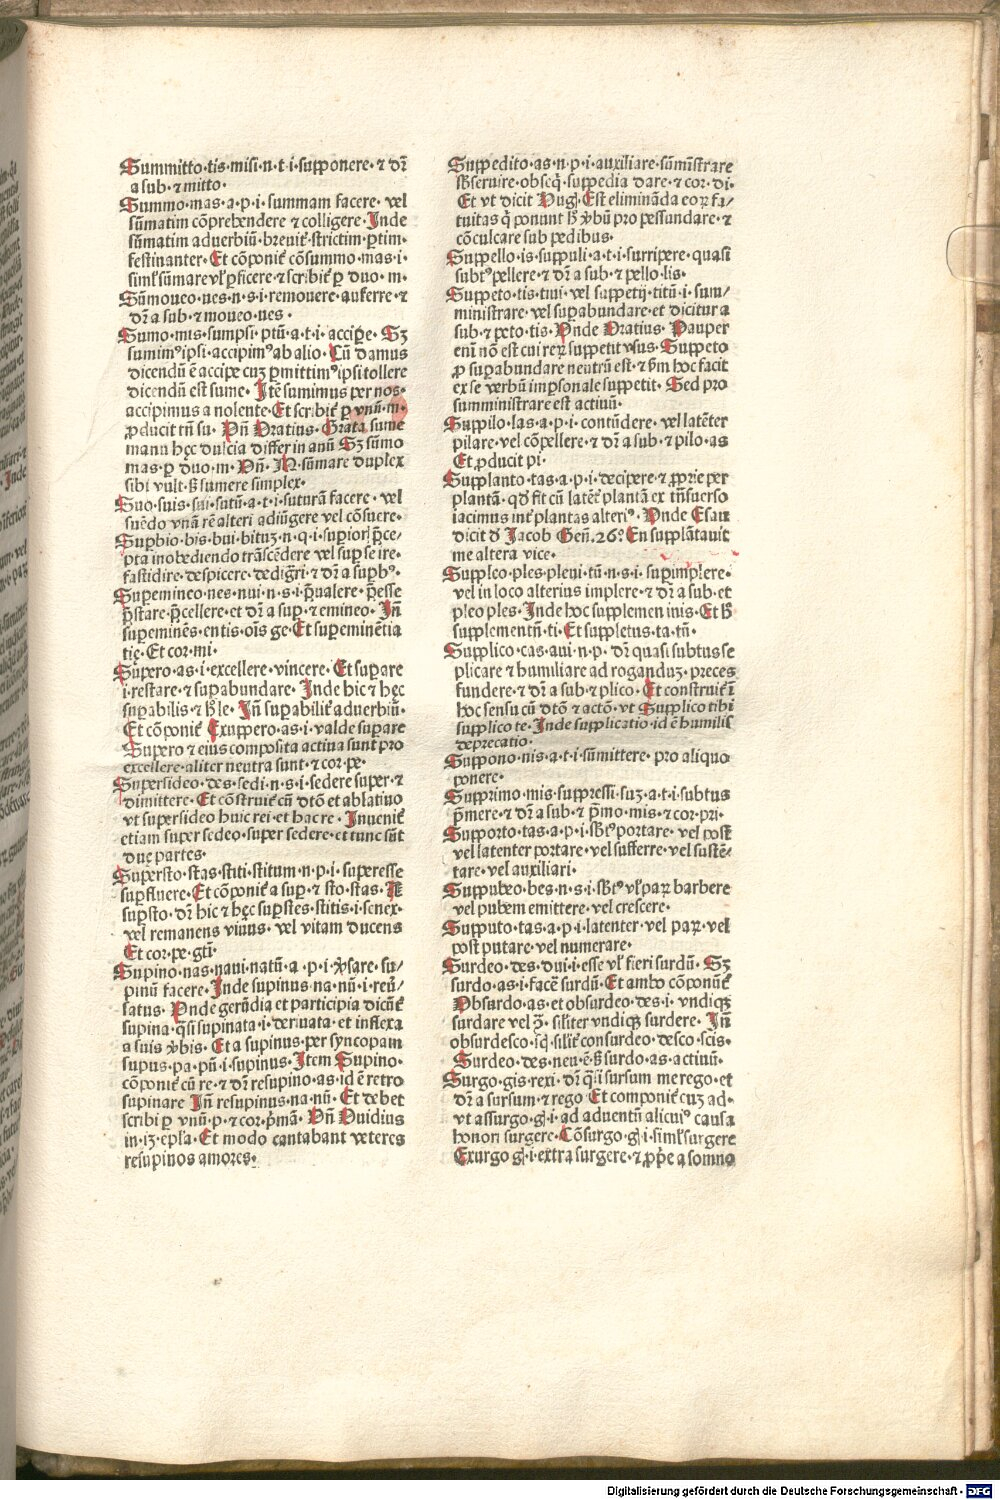 Summitto·tis·misi·n·t·i·supponere·⁊ dr̄
a sub·⁊ mitto·
Summo·mas·a·p·i·summam facere·vel
sūmatim cōprehendere ⁊ colligere·Inde
sūmatim aduerbiū·breuit̄·strictim·ꝑtim·
festinanter·Et cōponit̄ cōsummo·mas·i·
siml̄ sūmare vl̄ ꝑficere·⁊ scribit̄ ꝑ duo·m·
Sūmoueo·ues·n·s·i·remouere·auferre·⁊
dr̄ a sub·⁊ moueo·ues·
Sumo·mis·sumpsi·ptū·a·t·i·accipe·Sꝫ
sumimꝰ ipsi·accipimꝰ ab alio·Cū damus
dicendū ē accipe cuꝫ ꝑmittimꝰ ipsi tollere
dicendū est sume·Itē sumimus per nos·
accipimus a nolente·Et scribit̄ ꝑ vnū·m·
ꝓducit tn̄ su·Vn̄ Oratius·Grata sume
manu hęc dulcia differ in anū Sꝫ sūmo
mas·ꝑ duo·m·Vn̄·M·sūmare duplex
sibi vult·ꝫ sumere simplex·
Suo·suis·sui·sutū·a·t·i·suturā facere·vel
suēdo vnā rē alteri adiūgere vel cōsuere·
Suꝑbio·bis·bui·bituꝫ·n·q·i·suꝑiorꝫ p̄ce-
pta inobediendo trāscēdere vel suꝑ se ire·
fastidire·despicere·dedigr̄i·⁊ dr̄ a suꝑbꝰ·
Suꝑemineo·nes·nui·n·s·i·p̄ualere·p̄esse
p̄stare·p̄cellere·et dr̄ a suꝑ·⁊ emineo·In̄
suꝑeminēs·entis·oīs ge·Et suꝑeminētia
tię·Et cor·mi·
Suꝑero·as·i·excellere·vincere·Et suꝑare
i·restare·⁊ suꝑabundare·Inde hic ⁊ hęc
suꝑabilis·⁊ h̄ le·In̄ suꝑabilit̄ aduerbiū·
Et cōponit̄ Exuppero·as·i·valde suꝑare
Suꝑero ⁊ eius composita actiua sunt pro
excellere·aliter neutra sunt·⁊ cor·pe·
Supersideo·des·sedi·n·s·i·sedere super·⁊
dimittere·Et cōstruit̄ cū dtō et ablatiuo
vt supersideo huic rei·et hac re·Inuenit̄
etiam super sedeo·super sedere·et tunc sūt
duę partes·
Supersto·stas·stiti·stitum·n·p·i·superesse
suꝑfluere·Et cōponit̄ a suꝑ·⁊ sto·stas·
suꝑsto·dr̄ hic ⁊ hęc suꝑstes·stitis·i·senex·
vel remanens viuus·vel vitam ducens
Et cor·pe·gti·
Supino·nas·naui·natū·a·p·i·v̄sare·su/
pinū facere·Inde supinus·na·nū·i·reū/
satus·Vnde gerūdia et participia dicūt̄
supina·qsi supinata·i·deriuata·et inflexa
a suis v̄bis·Et a supinus·per syncopam
supus·pa·pū·i·supinus·Item Supino·
cōponit̄ cū re·⁊ dr̄ resupino·as·id ē retro
supinare In̄ resupinus·na·nū·Et debet
scribi ꝑ vnū·p·⁊ cor·p̄mā·Vn̄ Ouidius
in·13·epl̄a·Et modo cantabant veteres
resupinos amores·
Suppedito·as·n·p·i·auxiliare·sūmīstrare
sb̄seruire·obseq̄·suppedia dare·⁊ cor·di·
Et vt dicit Hug·Est elimināda eoꝝ fa/
tuitas q̄ ponunt h̄ v̄bū pro pessundare·⁊
cōculcare sub pedibus·
Suppello·is·suppuli·a·t·i·surripere·quasi
subtꝰ pellere·⁊ dr̄ a sub·⁊ pello·lis·
Suppeto·tis·tiui·vel suppetij·titū·i·sum/
ministrare·vel suꝑabundare·et dicitur a
sub·⁊ peto·tis·Vnde Oratius·Pauper
enī nō est cui reꝝ suppetit vsus·Suppeto
ꝓ suꝑabundare neutrū est·⁊ ẜm hoc facit
ex se verbū imꝑsonale suppetit·Sed pro
sumministrare est actiuū·
Suppilo·las·a·p·i·contūdere·vel latēter
pilare·vel cōpellere·⁊ dr̄ a sub·⁊ pilo·as
Et ꝓducit pi·
Supplanto·tas·a·p·i·decipere·⁊ ꝓprie per
plantā·qđ fit cū latēt̄ plantā ex trāsuerso
iacimus int̄ plantas alteriꝰ·Vnde Esau
dicit đ Jacob Gen̄·26·En supplātauit
me altera vice·
Suppleo·ples·pleui·tū·n·s·i·suꝑimplere·
vel in loco alterius implere·⁊ dr̄ a sub·et
pleo ples·Inde hoc supplemen inis·Et h̄
supplementū·ti·Et suppletus·ta·tū·
Supplico·cas·aui·n·p·dr̄ quasi subtus se
plicare ⁊ humiliare ad roganduꝫ·preces
fundere·⁊ dr̄ a sub·⁊ plico·Et construit̄ ī
hoc sensu cū dtō ⁊ actō·vt Supplico tibi
supplico te·Inde supplicatio·id ē humilis
deprecatio·
Suppono·nis·a·t·i·sūmittere·pro aliquo
ponere·
Supprimo·mis·suppressi·suꝫ·a·t·i·subtus
p̄mere·⁊ dr̄ a sub·⁊ p̄mo·mis·⁊ cor·pri·
Supporto·tas·a·p·i·sb̄tꝰ portare·vel post
vel latenter portare·vel sufferre·vel sustē-
tare·vel auxiliari·
Suppubeo·bes·n·s·i·sb̄tꝰ vl̄ paꝝ barbere
vel pubem emittere·vel crescere·
Supputo·tas·a·p·i·latenter·vel paꝝ·vel
post putare·vel numerare·
Surdeo·des·dui·i·esse vl̄ fieri surdū·Sꝫ
surdo·as·i·facē surdū·Et ambo cōponūt̄
Obsurdo·as·et obsurdeo·des·i·vndiqꝫ
surdare vel ꝯ·sil̄iter vndiqꝫ surdere·In̄
obsurdesco·sꝗ·sil̄it̄ consurdeo·desco·scis·
Surdeo·des·neu·ē·ꝫ surdo·as·actiuū·
Surgo·gis·rexi·dr̄ q̄i sursum me rego·et
dr̄ a sursum·⁊ rego Et componit̄ cuꝫ ad·
vt assurgo·g̣·i·ad aduentū alicuiꝰ causa
honori surgere·Cōsurgo·g̣·i·siml̄ surgere
Exurgo g̣·i·extra surgere·⁊ ꝓp̄e a somno
Digitalisierung gefördert durch die Deutsche Forschungsgemeinschaft - DFG